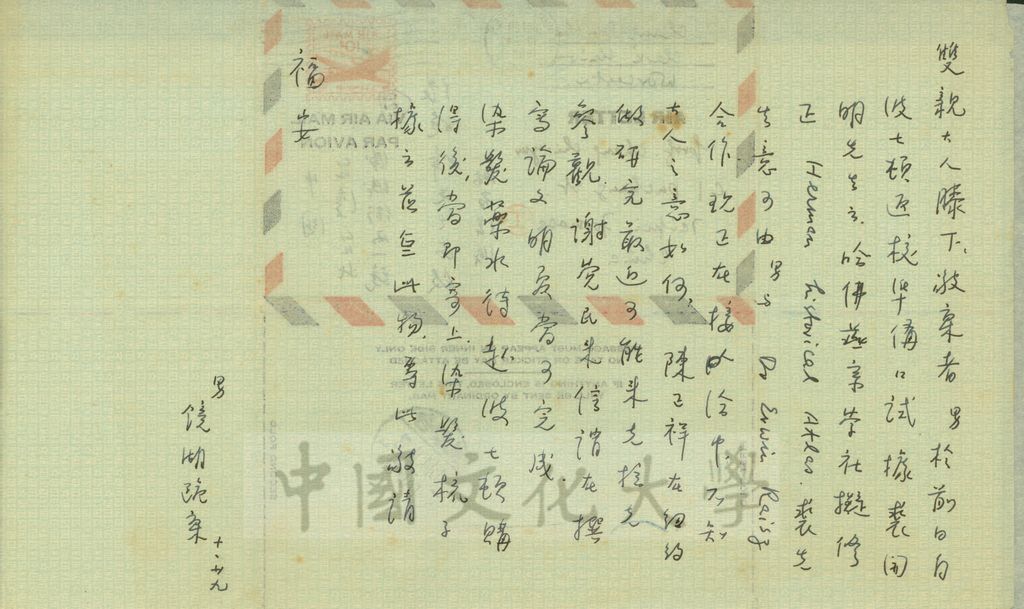 雙親大人膝下:敬稟者 男於前日自
波士頓返校準備口試據裘開
明先生云哈佛燕京學社擬修
正 Herman historical Atlas. 裘先
生意可由男與 Dr Erwin Raisz
合作.現正在接洽中,不知
大人之意如何,陳正祥在紐約
做研究最近可能來克拉克
參觀.謝覺民來信謂在撰
寫論文明夏當可完成.
染髮藥水待赴波士頓購
得後,當即寄上.染髮梳子
據云並無此物.專此敬請
福安
男
鏡湖跪稟
十、廿九
中國文化大學
AIR LETTER
VIA AIR MAIL
PAR AVION